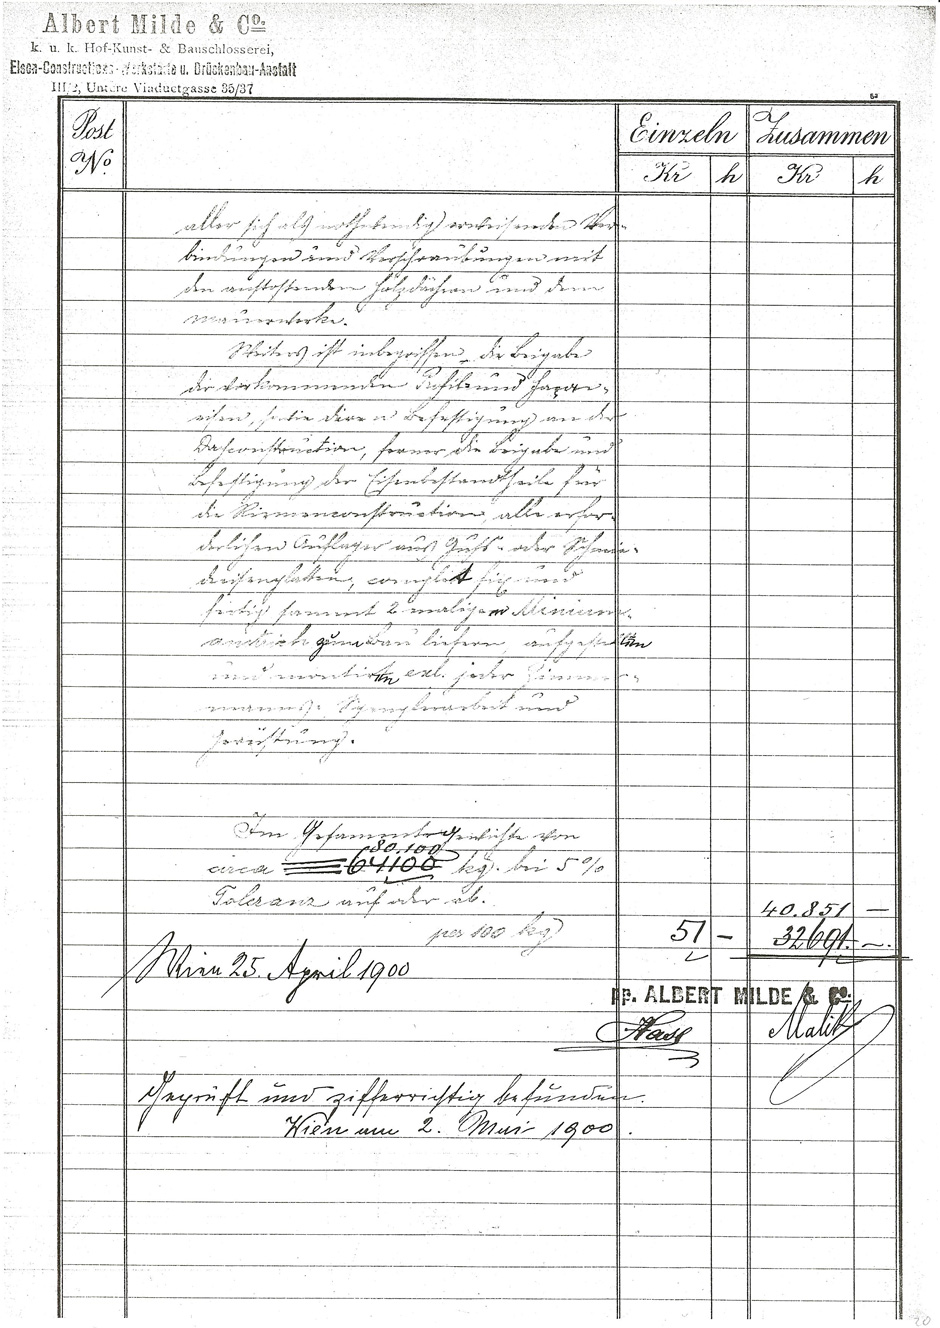 Albert Milde & Co.
k. u. k. Hof-Kunst- & Bauschlosserei,
Eisen-Constructions-Werkstätte u. Brückenbau-Anstalt
III/2, Untere Viaductgasse 35/37
Post No. Einzeln Zusammen
Kr h Kr h
aller sich als nothwendig erweisenden Ver-
bindungen und Verschraubungen mit
den anstossenden Holzdächern und dem
Mauerwerke.
Weiters ist inbegriffen die Beigabe
der vorkommenden Profil- und Façon-
eisen, sowie deren Befestigung an der
Dachconstruction, ferner die Beigabe und
Befestigung der Eisenbestandtheile für
die Rinnenconstruction, alle erfor-
derlichen Auflager aus Guss- oder Schmie-
deeisenplatten, complet fix und
fertig sammt 2 maligem Minium-
anstrich zum Bau liefern, aufgestellten
und montirten exl. jeder Zimmer-
manns- Spenglerarbeit und
Gerüstung.
Im Gesammtgewichte von
80.100
circa 64100 kg. bei 5%
Toleranz auf oder ab. 40.851 —
per 100 kg 51 — 32691. —.
Wien 25. April 1900
pp. ALBERT MILDE & Co.
Malik
Geprüft und ziffernrichtig befunden.
Wien am 2. Mai 1900.
20